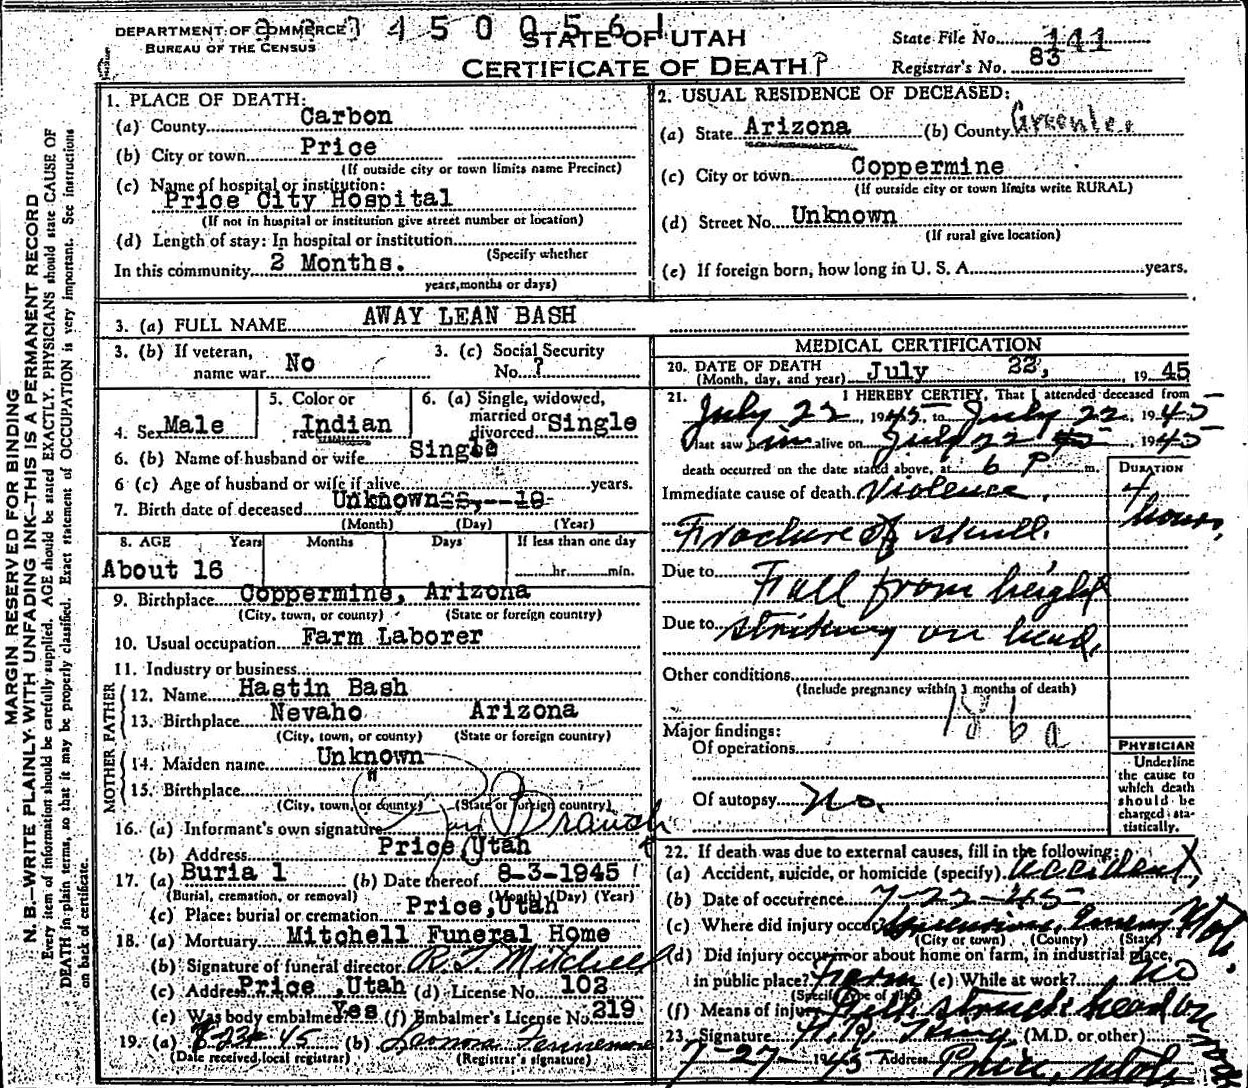 DEPARTMENT OF COMMERCE
BUREAU OF THE CENSUS
450 0561
STATE OF UTAH
CERTIFICATE OF DEATH
State File No. 141
Registrar's No. 83
MARGIN RESERVED FOR BINDING
N. B.—WRITE PLAINLY WITH UNFADING INK—THIS IS A PERMANENT RECORD
Every item of information should be carefully supplied. AGE should be stated EXACTLY. PHYSICIANS should state CAUSE OF
DEATH in plain terms, so that it may be properly classified. Exact statement of OCCUPATION is very important. See instructions
on back of certificate.
1. PLACE OF DEATH:
(a) County Carbon
(b) City or town Price
(If outside city or town limits name Precinct)
(c) Name of hospital or institution:
Price City Hospital
(If not in hospital or institution give street number or location)
(d) Length of stay: In hospital or institution
(Specify whether
In this community 2 Months.
years, months or days)
2. USUAL RESIDENCE OF DECEASED:
(a) State Arizona (b) County Greenlee
(c) City or town Coppermine
(If outside city or town limits write RURAL)
(d) Street No. Unknown
(If rural give location)
(e) If foreign born, how long in U. S. A. years.
3. (a) FULL NAME AWAY LEAN BASH
3. (b) If veteran, name war No
3. (c) Social Security No. ?
4. Sex Male
5. Color or race Indian
6. (a) Single, widowed, married or divorced Single
6. (b) Name of husband or wife Single
6 (c) Age of husband or wife if alive years.
7. Birth date of deceased Unknown
(Month) (Day) (Year)
8. AGE Years Months Days If less than one day
About 16 hr. min.
9. Birthplace Coppermine, Arizona
(City, town, or county) (State or foreign country)
10. Usual occupation Farm Laborer
11. Industry or business
FATHER
12. Name Hastin Bash
13. Birthplace Nevaho Arizona
(City, town, or county) (State or foreign country)
MOTHER
14. Maiden name Unknown
15. Birthplace "
(City, town, or county) (State or foreign country)
16. (a) Informant's own signature Branch
(b) Address Price, Utah
17. (a) Buria l (b) Date thereof 8-3-1945
(Burial, cremation, or removal) (Month) (Day) (Year)
(c) Place: burial or cremation Price, Utah
18. (a) Mortuary Mitchell Funeral Home
(b) Signature of funeral director Mitchell
(c) Address Price, Utah (d) License No. 102
(e) Was body embalmed? Yes (f) Embalmer's License No. 219
19. (a) 45 (b) Leonora
(Date received local registrar) (Registrar's signature)
MEDICAL CERTIFICATION
20. DATE OF DEATH
(Month, day, and year) July 22, 19 45
21. I HEREBY CERTIFY, That I attended deceased from
July 22 1945 to July 22 1945
I last saw him alive on July 22 1945
death occurred on the date stated above, at 6 P m.
DURATION
Immediate cause of death Violence. 4 hours,
Fracture of skull.
Due to Fall from height
Due to striking on head,
Other conditions
(Include pregnancy within 3 months of death)
186a
Major findings:
Of operations
Of autopsy No.
PHYSICIAN
Underline
the cause to
which death
should be
charged sta-
tistically.
22. If death was due to external causes, fill in the following:
(a) Accident, suicide, or homicide (specify) Accident,
(b) Date of occurrence 7-22-45
(c) Where did injury occur? Emery Utah,
(City or town) (County) (State)
(d) Did injury occur in or about home on farm, in industrial place,
in public place? Farm (e) While at work? No
(Specify type of place)
(f) Means of injury Fell struck head on
23. Signature (M.D. or other)
7-27-1945 Address Price, Utah